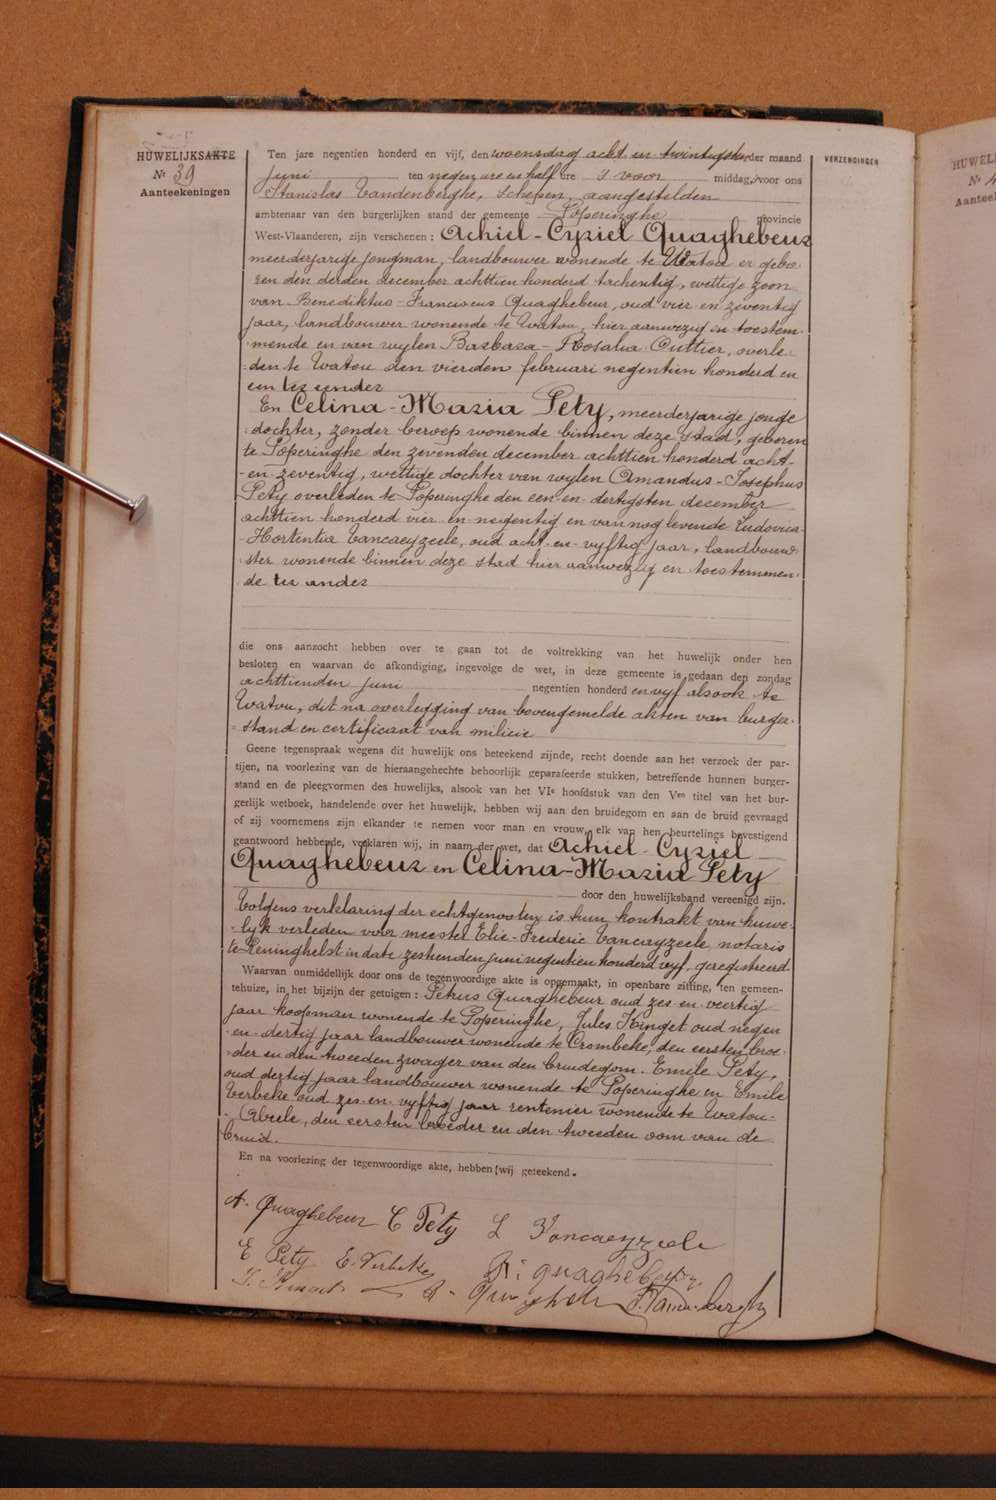 HUWELIJKSAKTE
Nr 39
Aanteekeningen
VERZENDINGEN
Ten jare negentien honderd en vijf, den woensdag acht en twintigsten der maand
juni ten negen ure en half ure 's voor middag, voor ons
Stanislas Vandenberghe, schepen, aangestelden
ambtenaar van den burgerlijken stand der gemeente Poperinghe provincie
West-Vlaanderen, zijn verschenen : Achiel-Cyriel Quaghebeur
meerderjarige jongman, landbouwer wonende te Watou er gebo-
ren den derden december achttien honderd tachentig, wettige zoon
van Benediktus-Franciscus Quaghebeur, oud vier-en-zeventig
jaar, landbouwer wonende te Watou, hier aanwezig en toestem-
mende en van wylen Barbara-Rosalia Outtier, overle-
den te Watou den vierden februari negentien honderd en
een ter eender
En Celina-Maria Pety, meerderjarige jonge
dochter, zonder beroep wonende binnen deze stad, geboren
te Poperinghe den zevenden december achttien honderd acht-
-en-zeventig, wettige dochter van wylen Amandus-Josephus
Pety overleden te Poperinghe den een-en-dertigsten december
achttien honderd vier-en-negentig en van nog levende Ludovica-
-Hortentia Vancaeyzeele, oud acht-en-vyftig jaar, landbouw-
ster wonende binnen deze stad hier aanwezig en toestemmen-
de ter ander
die ons aanzocht hebben over te gaan tot de voltrekking van het huwelijk onder hen
besloten en waarvan de afkondiging, ingevolge de wet, in deze gemeente is gedaan den zondag
achttienden juni negentien honderd en vyf alsook te
Watou, dit na overlegging van bovengemelde akten van burger-
-stand en certificaat van milicie
Geene tegenspraak wegens dit huwelijk ons beteekend zijnde, recht doende aan het verzoek der par-
tijen, na voorlezing van de hieraangehechte behoorlijk geparafeerde stukken, betreffende hunnen burger-
stand en de pleegvormen des huwelijks, alsook van het VIe hoofdstuk van den Ven titel van het bur-
gerlijk wetboek, handelende over het huwelijk, hebben wij aan den bruidegom en aan de bruid gevraagd
of zij voornemens zijn elkander te nemen voor man en vrouw, elk van hen beurtelings bevestigend
geantwoord hebbende, verklaren wij, in naam der wet, dat Achiel-Cyriel
Quaghebeur en Celina-Maria Pety
door den huwelijksband vereenigd zijn.
Volgens verklaring der echtgenooten is hun kontrakt van huwe-
-lyk verleden voor meester Elie-Frederic Vancayzeele notaris
te Reninghelst in date zestienden juni negentien honderd vyf, geregistreerd.
Waarvan onmiddelijk door ons de tegenwoordige akte is opgemaakt, in openbare zitting, ten gemeen-
tehuize, in het bijzijn der getuigen : Petrus Quaghebeur oud zes-en-veertig
jaar koopman wonende te Poperinghe, Jules Kinget oud negen
-en-dertig jaar landbouwer wonende te Crombeke, den eersten broe-
der en den tweeden zwager van den bruidegom. Emile Pety,
oud dertig jaar landbouwer wonende te Poperinghe en Emile
Verbeke oud zes-en-vyftig jaar rentenier wonende te Watou-
-Abeele, den eersten broeder en den tweeden oom van de
bruid.
En na voorlezing der tegenwoordige akte, hebben wij geteekend.
A. Quaghebeur C Pety L Vancaeyzeele
E Pety E. Verbeke B: quaghebeur
J. Kinget P. Quaghebeur S. Vandenberghe
HUWELI
Aanteeke